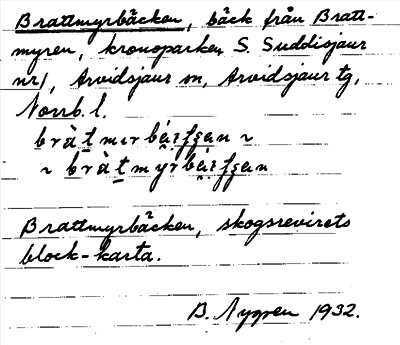 Brattmyrbäcken, bäck från Bratt-
myren, kronoparken S. Suddisjaur
nr 1, Arvidsjaur sn, Arvidsjaur tg,
Norrb. l.
Brattmyrbäcken, skogsrevirets
block-karta.
B. Nygren 1932.